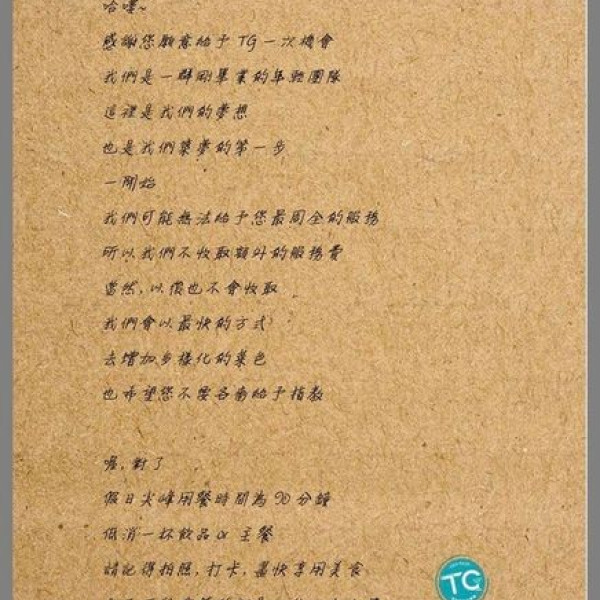 哈嘍~
感謝您願意給予TG一次機會
我們是一群剛畢業的年輕團隊
這裡是我們的夢想
也是我們築夢的第一步
一開始
我們可能無法給予您最周全的服務
所以我們不收取額外的服務費
當然,以後也不會收取
我們會以最快的方式
去增加多樣化的菜色
也希望您不要吝嗇給予指教
喔,對了
假日尖峰用餐時間為90分鐘
低消一杯飲品or主餐
請記得拍照,打卡,盡快享用美食
TG